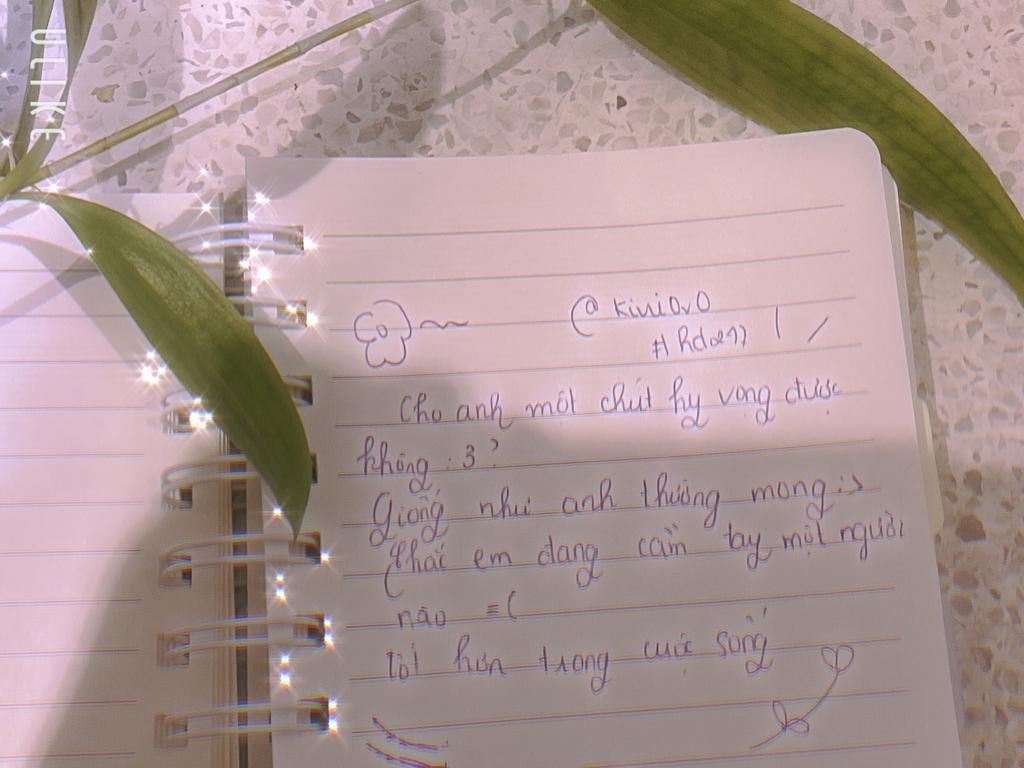 ULIKE
@ kiwi0v0
Cho anh một chút hy vọng được
không :3?
Giống như anh thường mong :>
Phải em đang cầm tay một người
nào =(
Tốt hơn trong cuộc sống